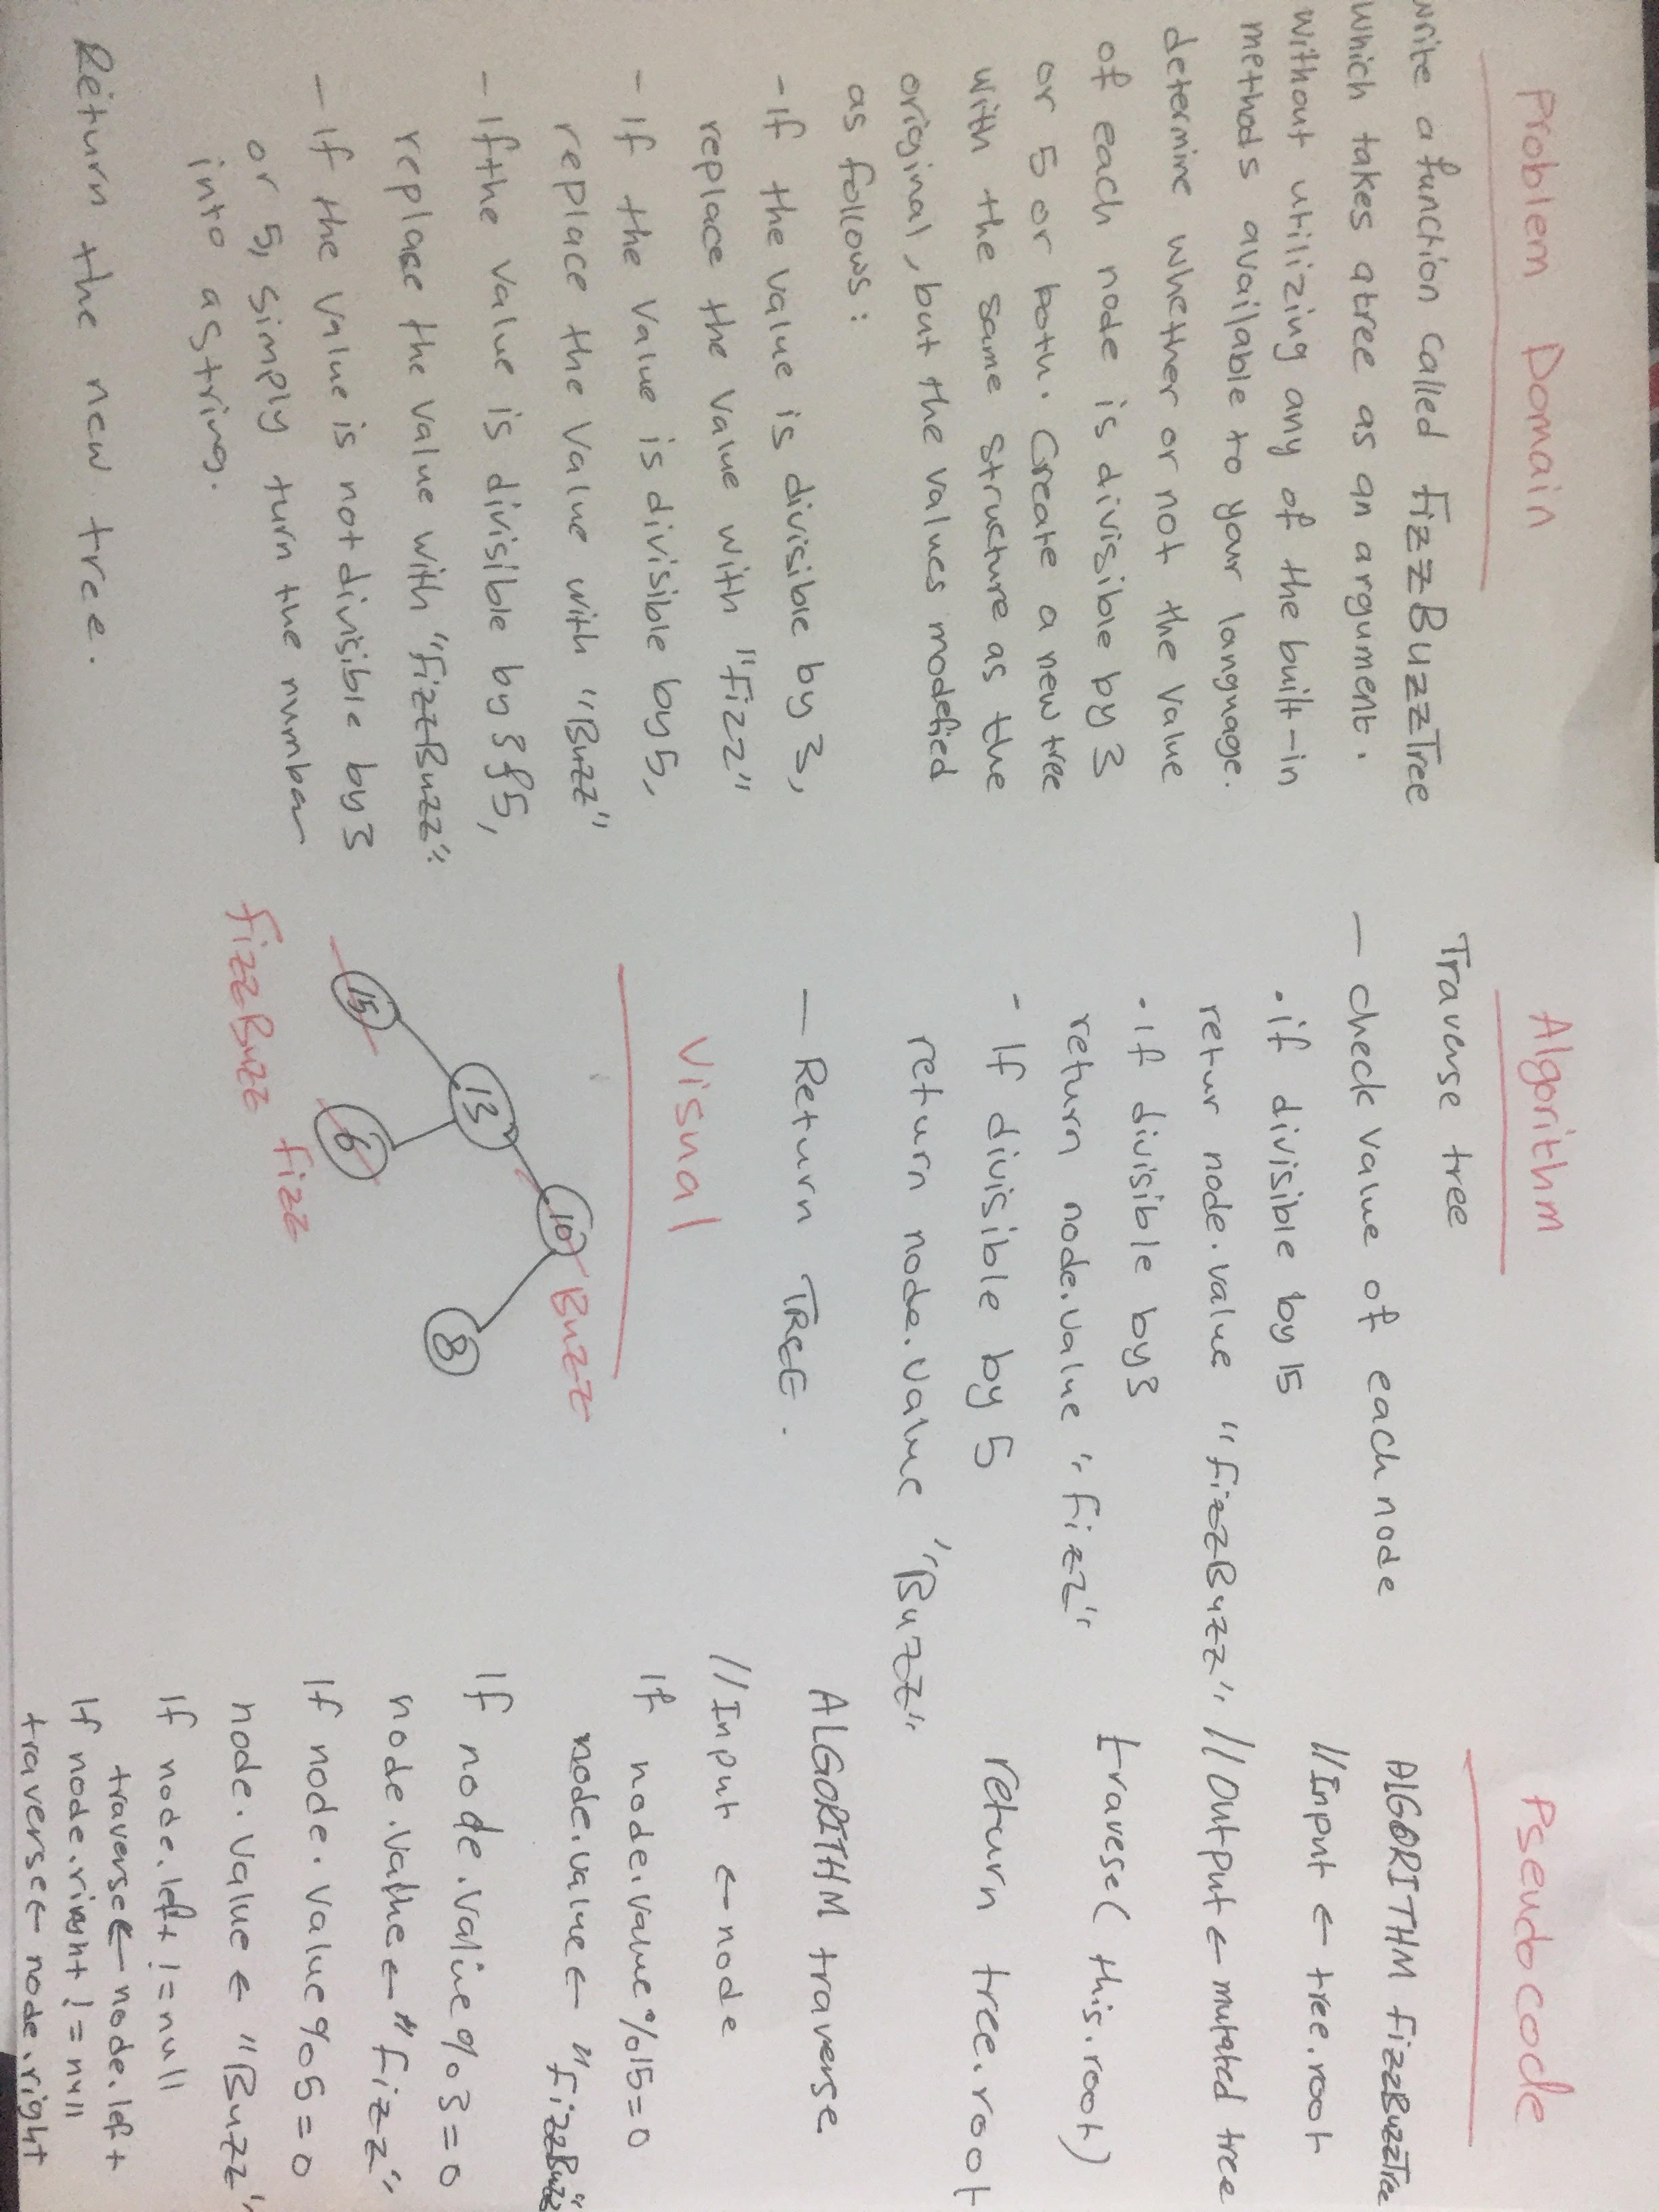 Problem Domain
write a function called FizzBuzzTree
which takes a tree as an argument.
without utilizing any of the built-in
methods available to your language.
determine whether or not the value
of each node is divisible by 3
or 5 or both. Create a new tree
with the same structure as the
original, but the values modefied
as follows:
-If the value is divisible by 3,
replace the value with "Fizz"
- If the value is divisible by 5,
replace the value with "Buzz"
- If the value is divisible by 3 & 5,
replace the value with "FizzBuzz"
- If the value is not divisible by 3
or 5, simply turn the number
into a string.
Return the new tree.
Algorithm
Traverse tree
- check value of each node
• if divisible by 15
retur node.value "fizzBuzz"
• if divisible by 3
return node.value "fizz"
- If divisible by 5
return node.value "Buzz"
- Return TREE.
Visual
10 Buzz
13
8
15
6
fizzBuzz
fizz
Pseudocode
ALGORITHM fizzBuzzTree
//Input ← tree.root
//Output ← mutated tree
travese(this.root)
return tree.root
ALGORITHM traverse
//Input ← node
If node.value%15=0
node.value ← "fizzBuzz"
If node.value%3=0
node.value ← "fizz"
If node.value%5=0
node.value ← "Buzz"
If node.left != null
traverse ← node.left
If node.right != null
traverse ← node.right